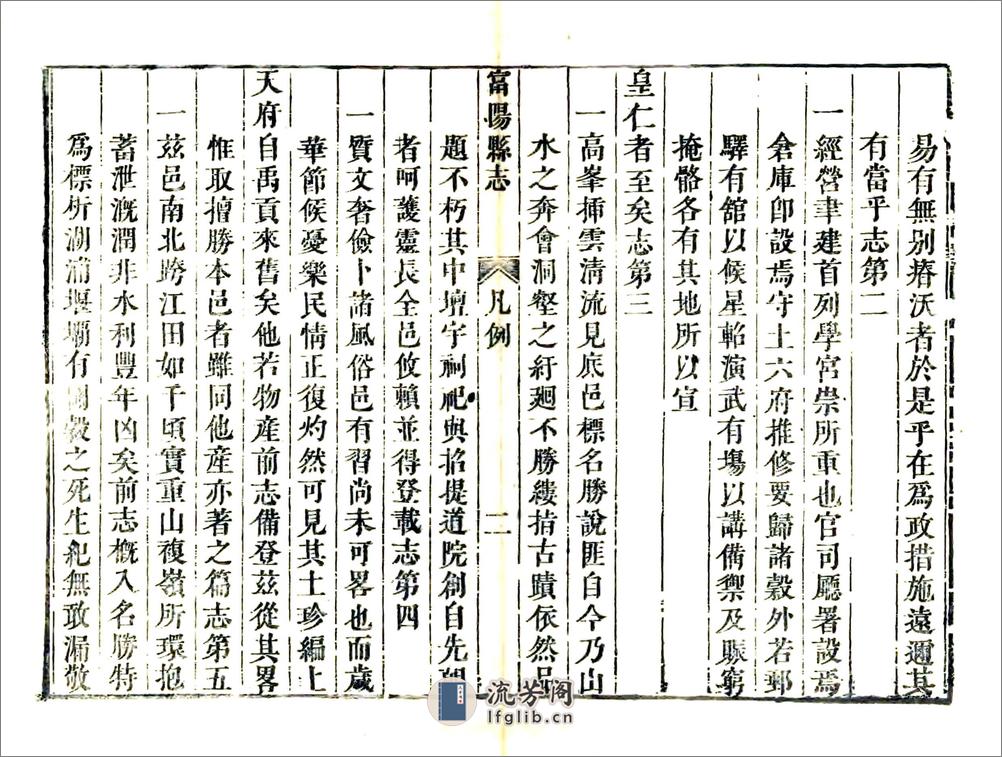 易有無別瘠沃者於是乎在為政措施遠邇其
有當乎志第二
一經營聿建首列學宮崇所重也官司廳署設焉
倉庫卽設焉守土六府推修要歸諸穀外若郵
驛有舘以候星軺演武有塲以講備禦及賑窮
掩骼各有其地所以宣
皇仁者至矣志第三
一高峯揷雲淸流見底邑標名勝說匪自今乃山
水之奔會洞壑之紆廻不勝縷指古蹟依然品
富陽縣志
凡例
二
題不朽其中壇宇祠祀與招提道院創自先朝
者呵護靈長全邑攸賴並得登載志第四
一質文奢儉卜諸風俗邑有習尚未可畧也而歲
華節候憂樂民情正復灼然可見其土珍編上
天府自禹貢來舊矣他若物産前志備登茲從其畧
惟取擅勝本邑者雖同他産亦著之篇志第五
一茲邑南北跨江田如千頃實重山複嶺所環抱
蓄泄漑潤非水利豐年凶矣前志槪入名勝特
為標析湖浦堰壩有關穀之死生紀無敢漏敬
流芳阁
lfglib.cn